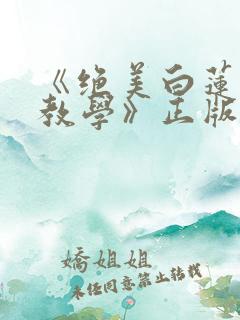 《绝美白莲
教学》正版
娇姐姐
未经同意禁止转载